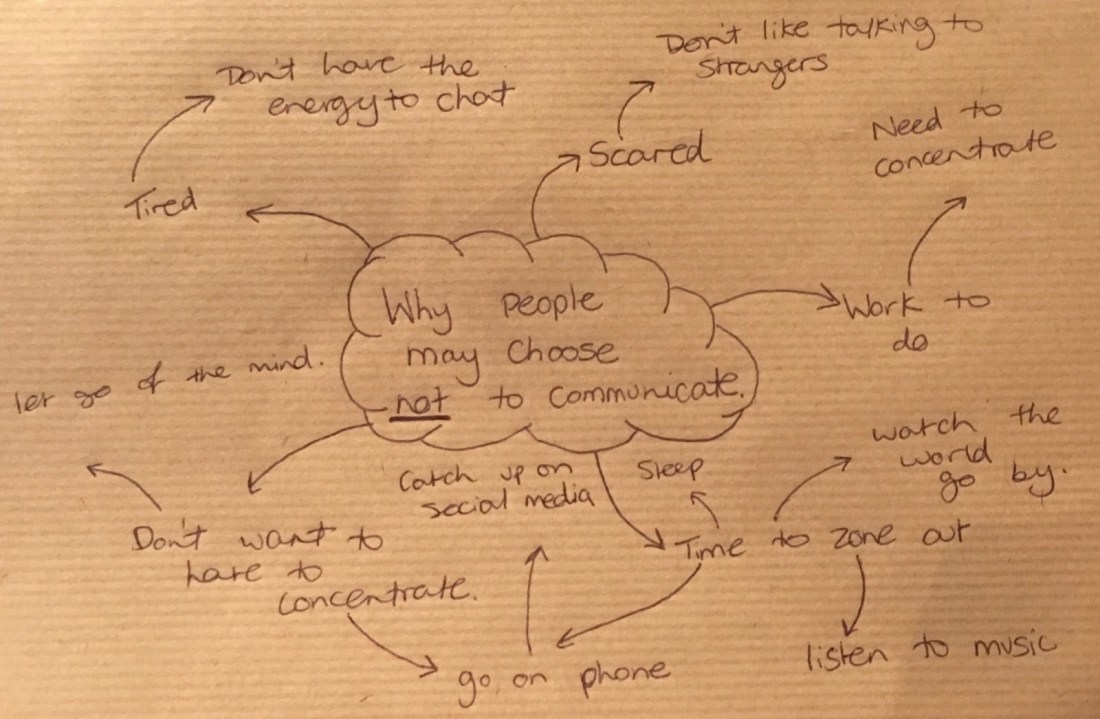 Don't like talking to
strangers
Don't have the
energy to chat
Need to
concentrate
Scared
Tired
Why people
may choose
not to communicate.
Work to
do
let go of the mind.
watch the
world
go by.
Catch up on
social media
Sleep
Time to zone out
Don't want to
have to
concentrate.
go on phone
listen to music